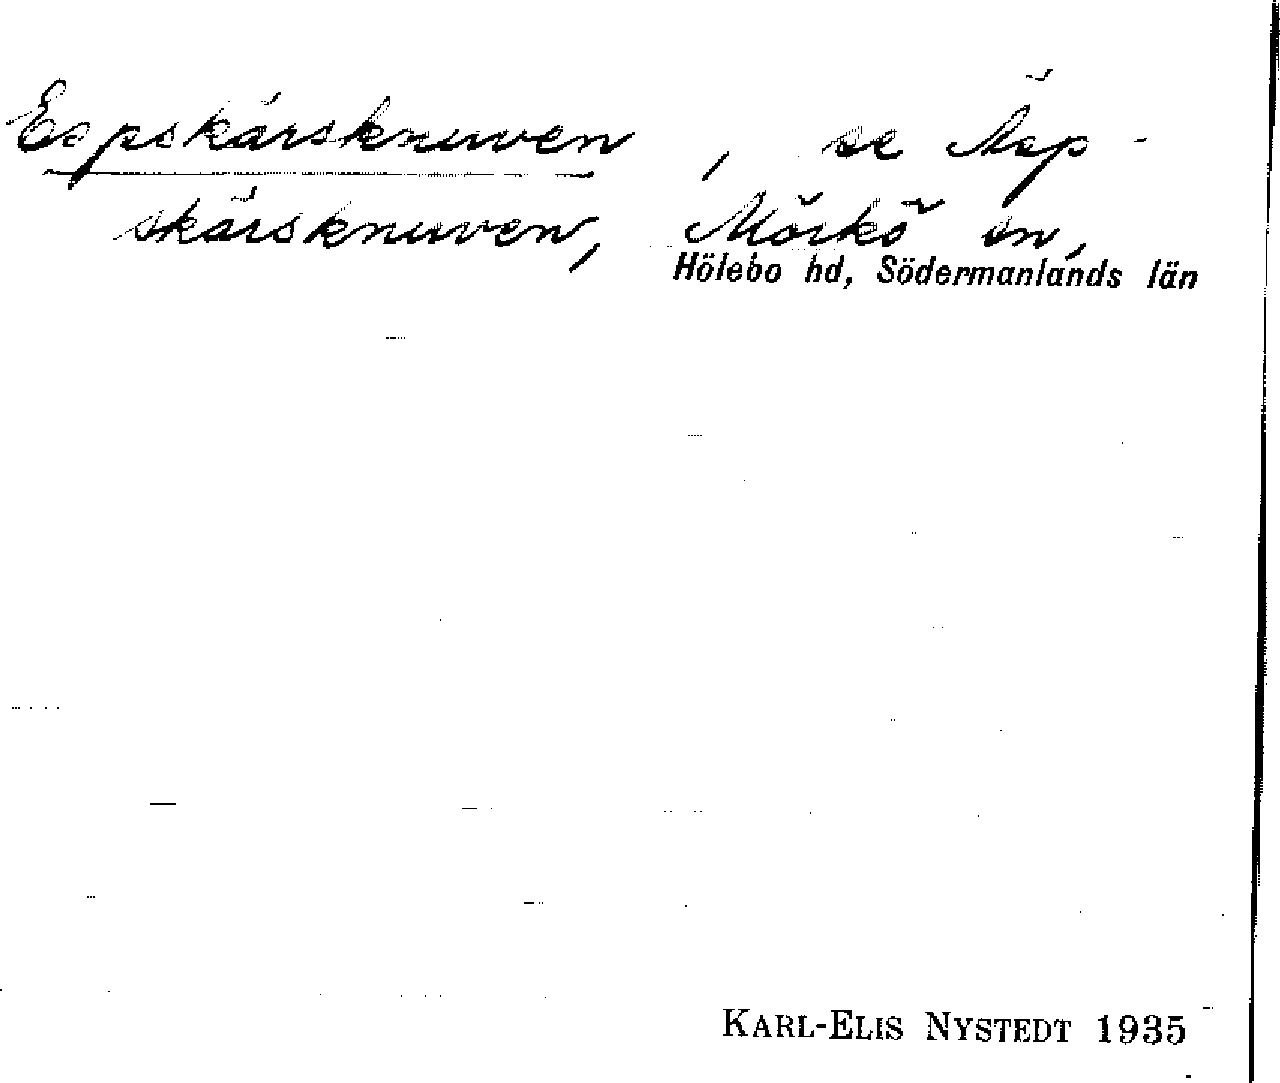 Espskärsknuven, se Äsp-
skärsknuven, Mörkö sn,
Hölebo hd, Södermanlands län
KARL-ELIS NYSTEDT 1935